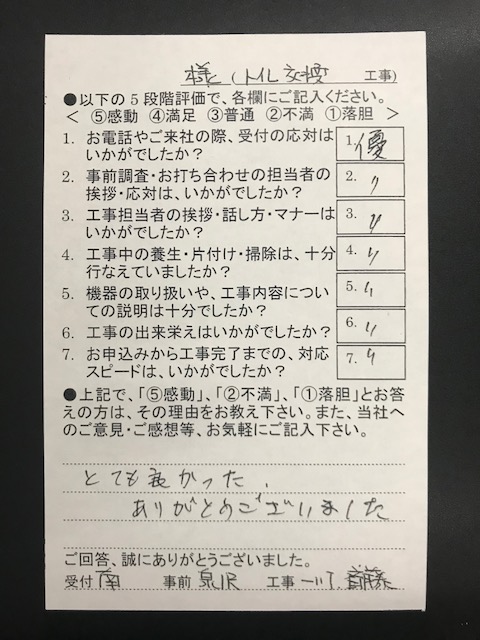 様 (トイレ交換 工事)
●以下の5段階評価で、各欄にご記入ください。
< ⑤感動 ④満足 ③普通 ②不満 ①落胆 >
1. お電話やご来社の際、受付の応対は
いかがでしたか?
1. 優
2. 事前調査・お打ち合わせの担当者の
挨拶・応対は、いかがでしたか?
2. 〃
3. 工事担当者の挨拶・話し方・マナーは
いかがでしたか?
3. 〃
4. 工事中の養生・片付け・掃除は、十分
行なえていましたか?
4. 〃
5. 機器の取り扱いや、工事内容につい
ての説明は十分でしたか?
5. 〃
6. 工事の出来栄えはいかがでしたか?
6. 〃
7. お申込みから工事完了までの、対応
スピードは、いかがでしたか?
7. 〃
●上記で、「⑤感動」、「②不満」、「①落胆」とお答
えの方は、その理由をお教え下さい。また、当社へ
のご意見・ご感想等、お気軽にご記入下さい。
とても良かった.
ありがとうございました
ご回答、誠にありがとうございました。
受付 南 事前 泉沢 工事